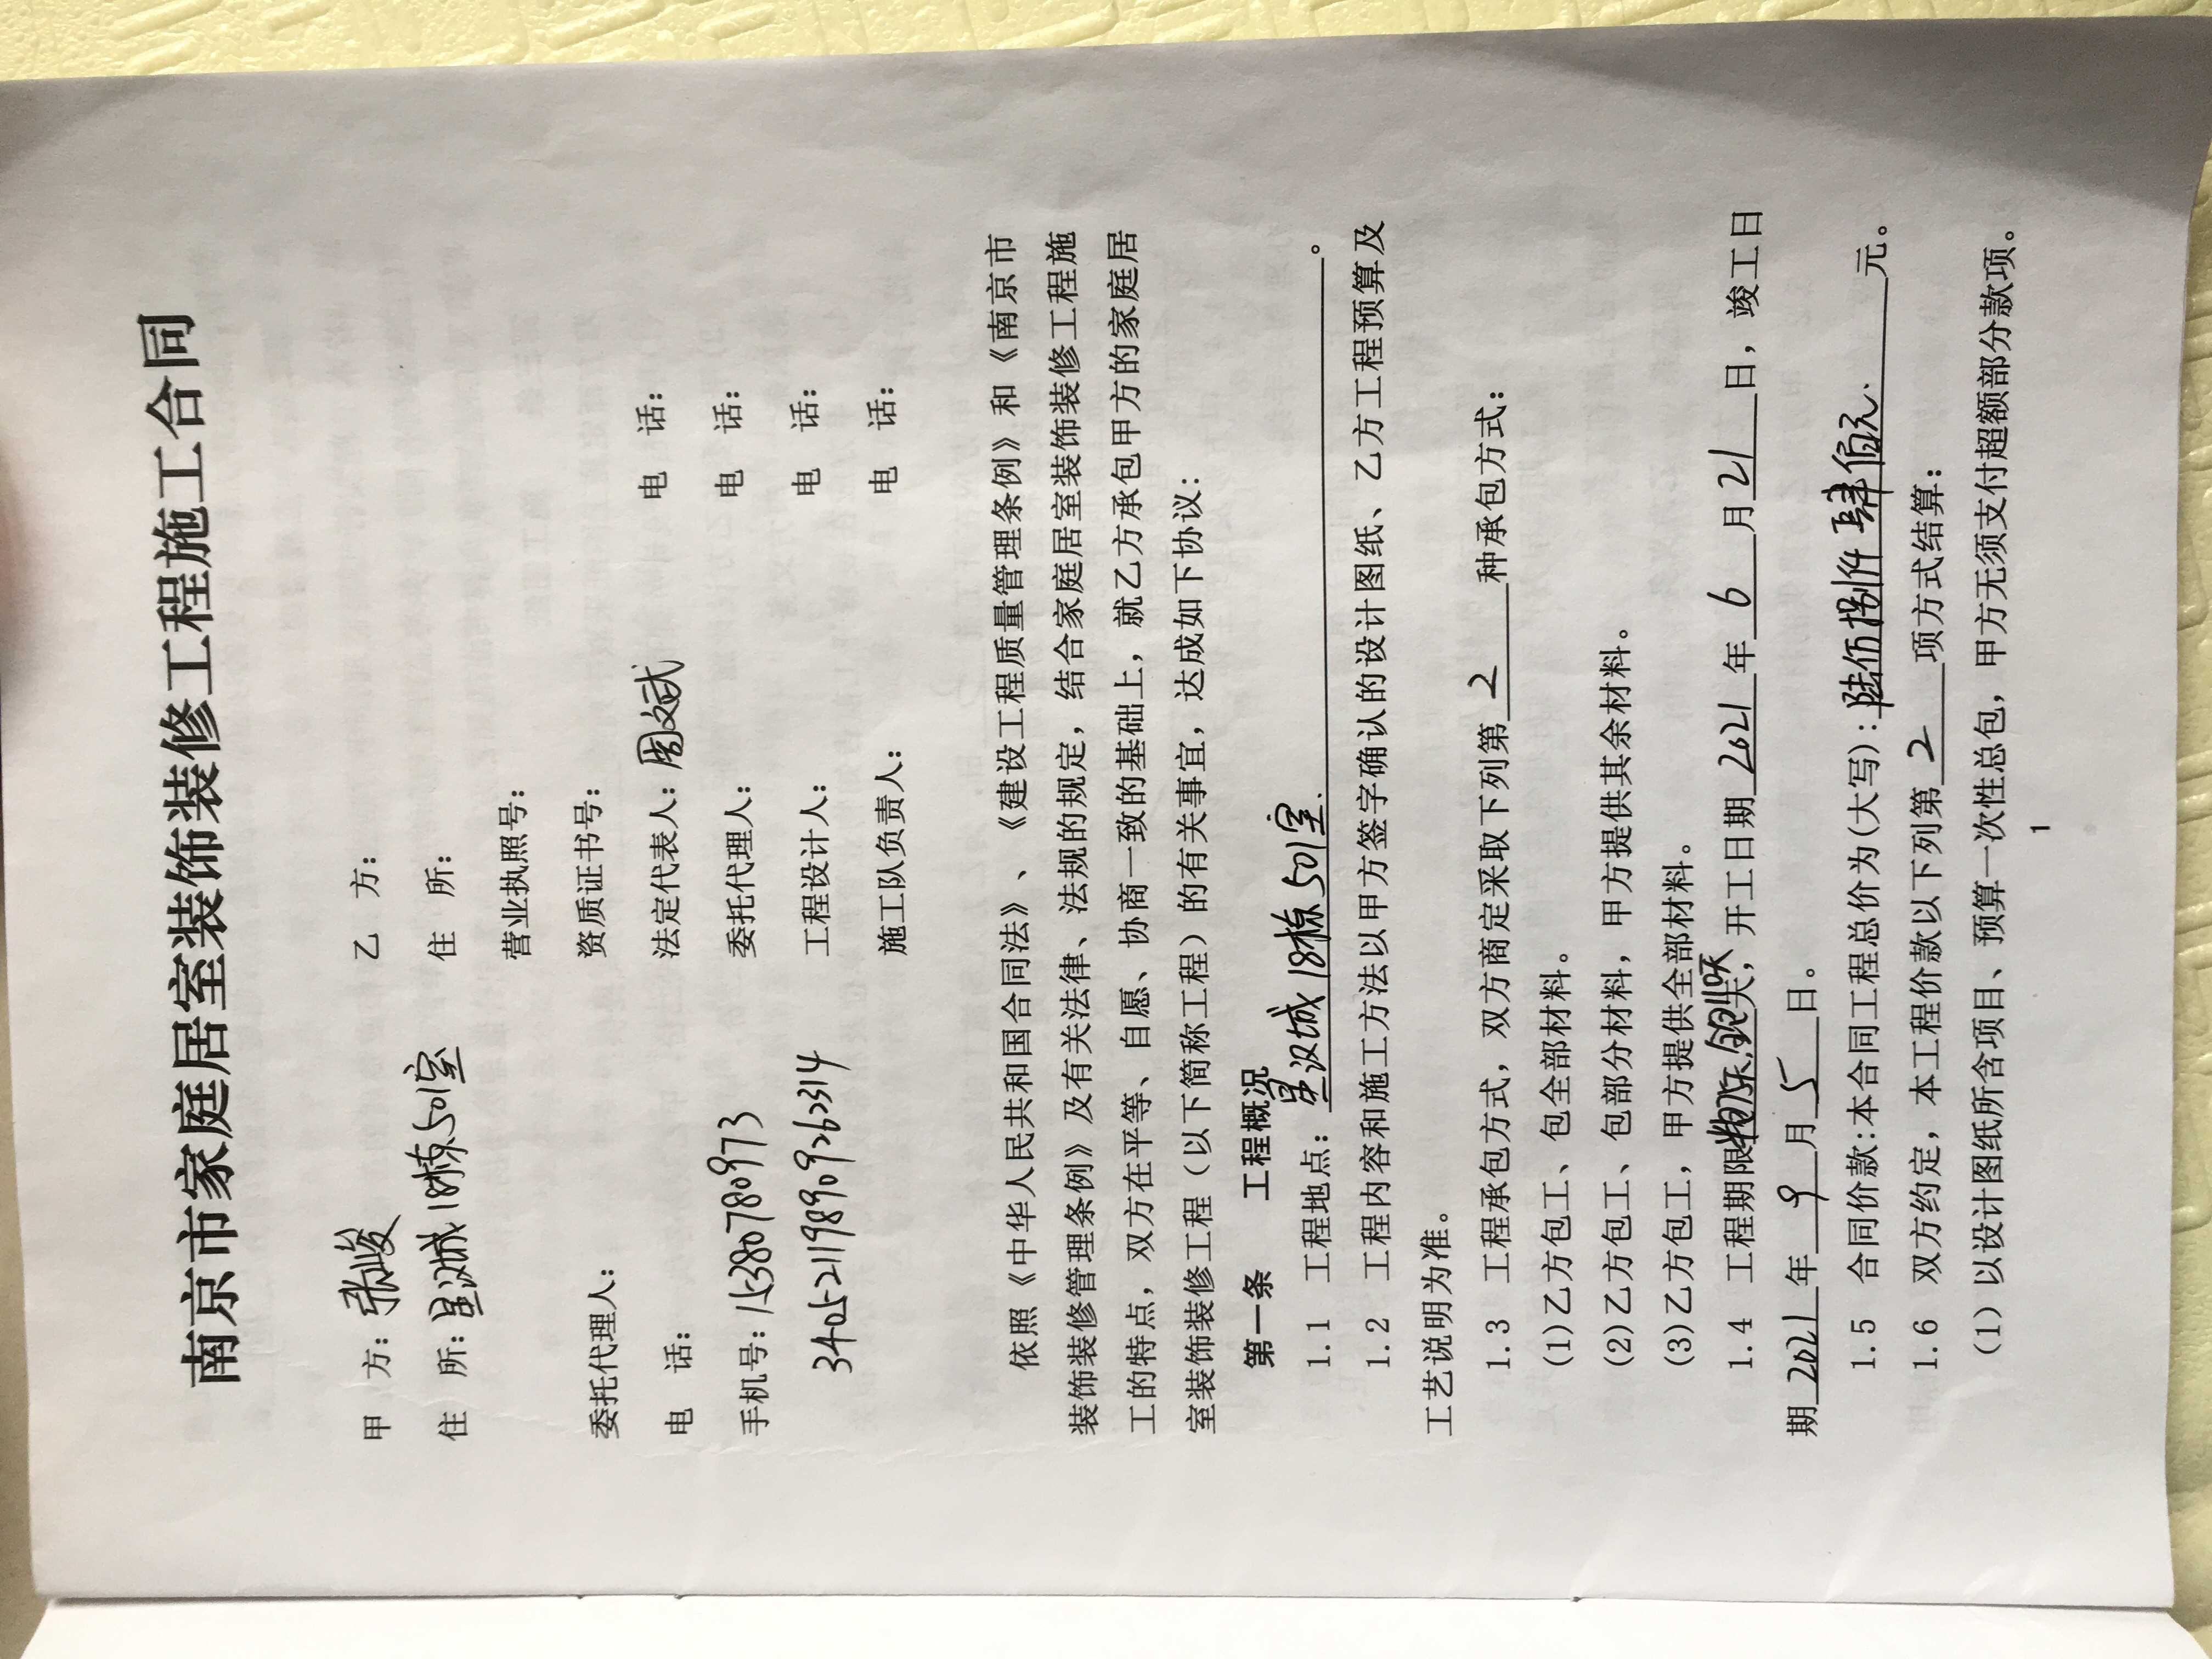 南京市家庭居室装饰装修工程施工合同
甲 方：张峻 乙 方：
住 所：星汉城18栋501室 住 所：
营业执照号：
委托代理人： 资质证书号：
电 话： 法定代表人：周文斌 电 话：
手机号：15380780973 委托代理人： 电 话：
340521198909262314 工程设计人： 电 话：
施工队负责人： 电 话：
依照《中华人民共和国合同法》、《建设工程质量管理条例》和《南京市
装饰装修管理条例》及有关法律、法规的规定，结合家庭居室装饰装修工程施
工的特点，双方在平等、自愿、协商一致的基础上，就乙方承包甲方的家庭居
室装饰装修工程（以下简称工程）的有关事宜，达成如下协议：
第一条 工程概况
1.1 工程地点：星汉城18栋501室.。
1.2 工程内容和施工方法以甲方签字确认的设计图纸、乙方工程预算及
工艺说明为准。
1.3 工程承包方式，双方商定采取下列第2种承包方式：
(1)乙方包工、包全部材料。
(2)乙方包工、包部分材料，甲方提供其余材料。
(3)乙方包工，甲方提供全部材料。
1.4 工程期限天，开工日期2021年6月21日，竣工日
期2021年9月5日。
1.5 合同价款:本合同工程总价为(大写):陆伍捌仟肆佰元.元。
1.6 双方约定，本工程价款以下列第2项方式结算：
(1)以设计图纸所含项目、预算一次性总包，甲方无须支付超额部分款项。
1